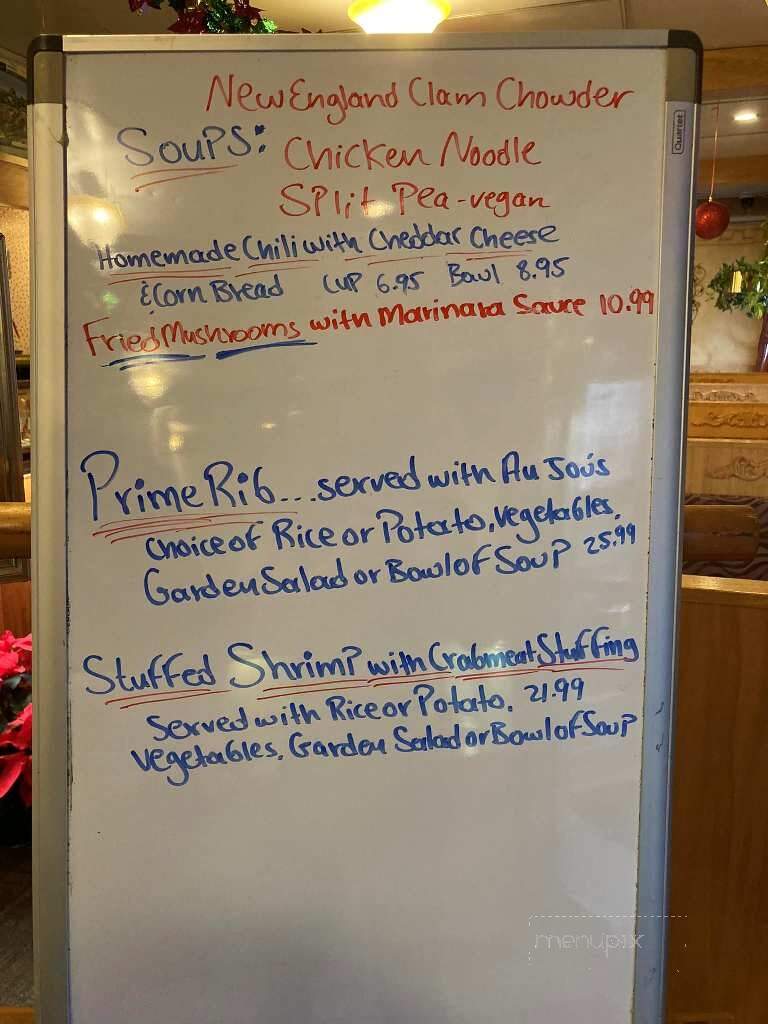 New England Clam Chowder
Soups: Chicken Noodle
Split Pea-vegan
Homemade Chili with Cheddar Cheese
& Corn Bread Cup 6.95 Bowl 8.95
Fried Mushrooms with Marinara Sauce 10.99
Prime Rib... served with Au Joús
choice of Rice or Potato, vegetables,
Garden Salad or Bowl of Soup 25.99
Stuffed Shrimp with Crabmeat Stuffing
Served with Rice or Potato, 21.99
vegetables, Garden Salad or Bowl of Soup
Quartet
menupix